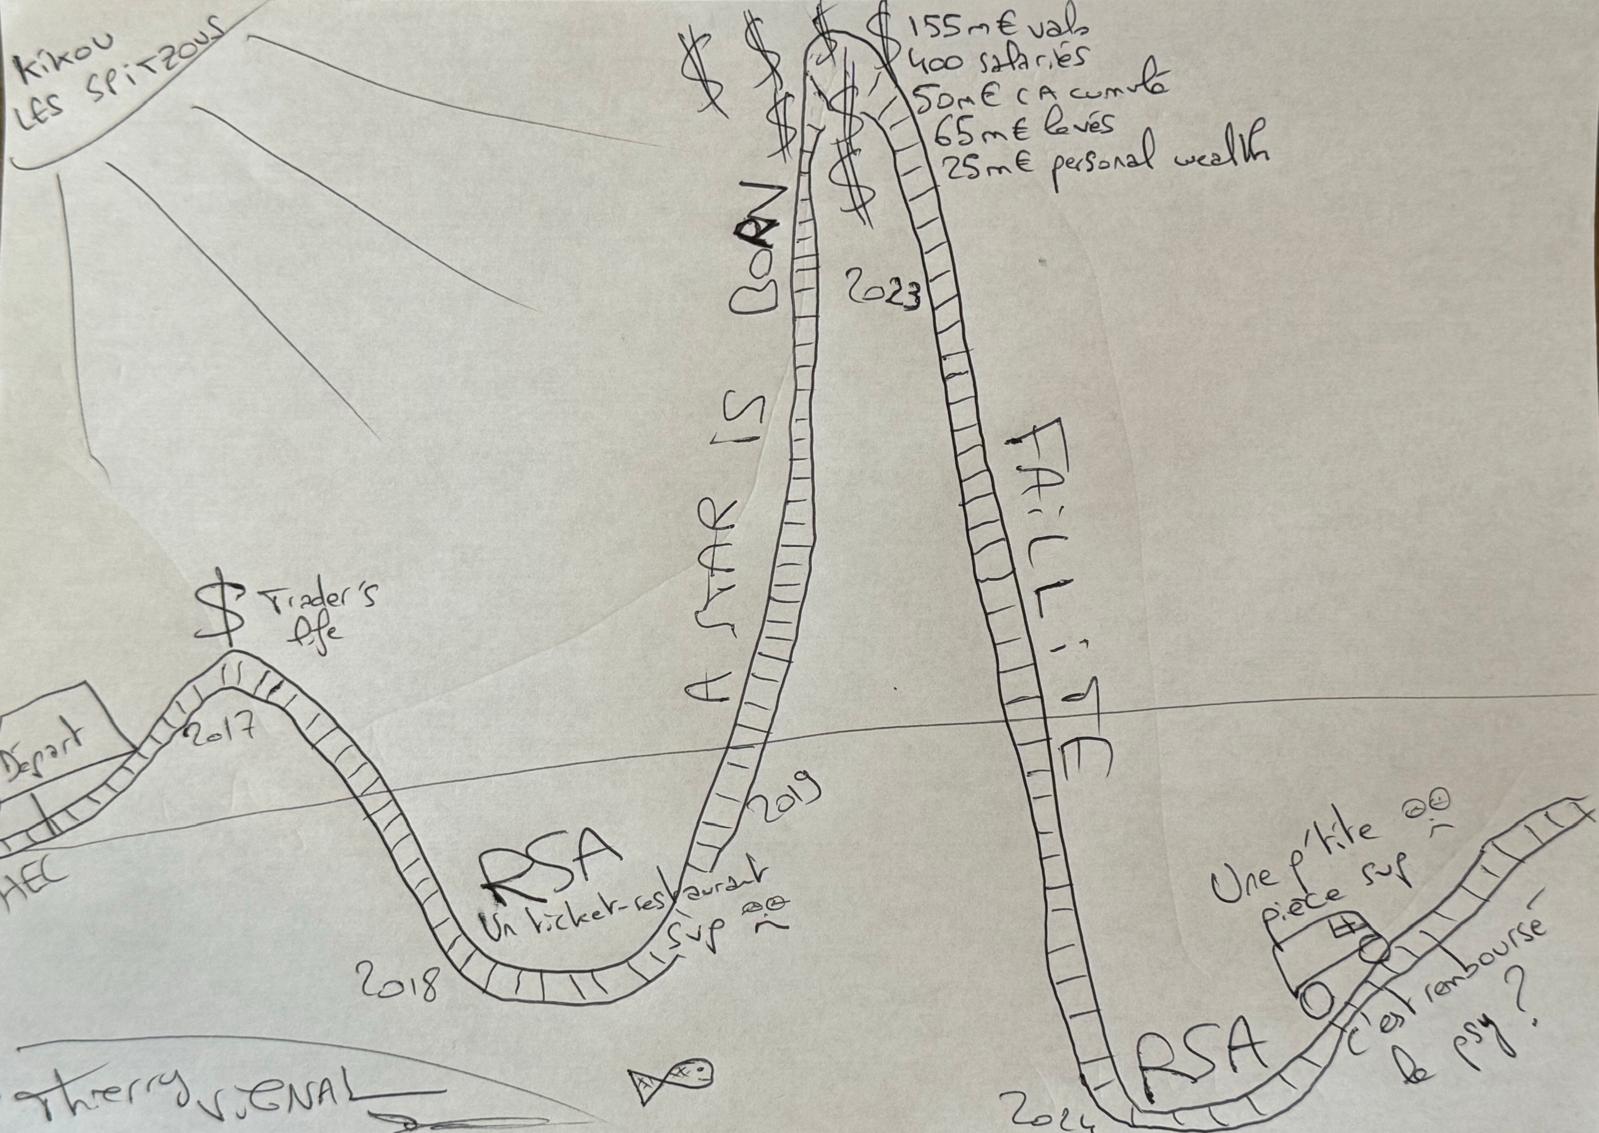 Kikou
LES SPITZOUS
$ $ $ $
$ $
$
155m€ valo
400 salariés
50m€ CA cumulé
65m€ levés
25m€ personal wealth
A STAR IS BORN
2023
FAILLITE
$ Trader's
life
Départ
HEC
2017
2018
RSA
Un ticket-restaurant
sup
2019
Une p'tite
pièce sup
c'est remboursé
le psy ?
RSA
2024
Thierry VIGNAL